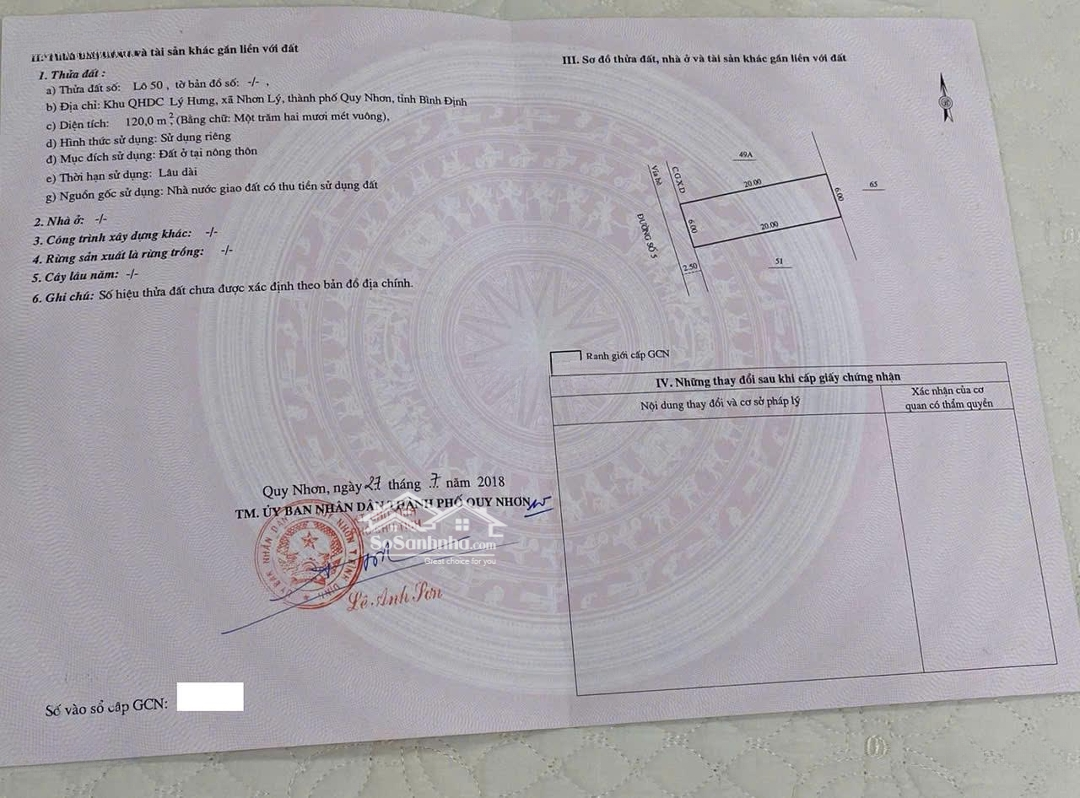 và tài sản khác gắn liền với đất
1. Thửa đất :
a) Thửa đất số: Lô 50 , tờ bản đồ số: -/- ,
b) Địa chỉ: Khu QHDC Lý Hưng, xã Nhơn Lý, thành phố Quy Nhơn, tỉnh Bình Định
c) Diện tích: 120,0 m², (Bằng chữ: Một trăm hai mươi mét vuông),
d) Hình thức sử dụng: Sử dụng riêng
đ) Mục đích sử dụng: Đất ở tại nông thôn
e) Thời hạn sử dụng: Lâu dài
g) Nguồn gốc sử dụng: Nhà nước giao đất có thu tiền sử dụng đất
2. Nhà ở: -/-
3. Công trình xây dựng khác: -/-
4. Rừng sản xuất là rừng trồng: -/-
5. Cây lâu năm: -/-
6. Ghi chú: Số hiệu thửa đất chưa được xác định theo bản đồ địa chính.
Quy Nhơn, ngày 27 tháng 7 năm 2018
TM. ỦY BAN NHÂN DÂN THÀNH PHỐ QUY NHƠN
SoSanhnha.com
Great choice for you
Lê Anh Sơn
Số vào sổ cấp GCN:
III. Sơ đồ thửa đất, nhà ở và tài sản khác gắn liền với đất
49A
65
51
20.00
20.00
6.00
6.00
2.50
Vỉa hè
C.G.X.D
ĐƯỜNG SỐ 5
Ranh giới cấp GCN
IV. Những thay đổi sau khi cấp giấy chứng nhận
Nội dung thay đổi và cơ sở pháp lý
Xác nhận của cơ
quan có thẩm quyền